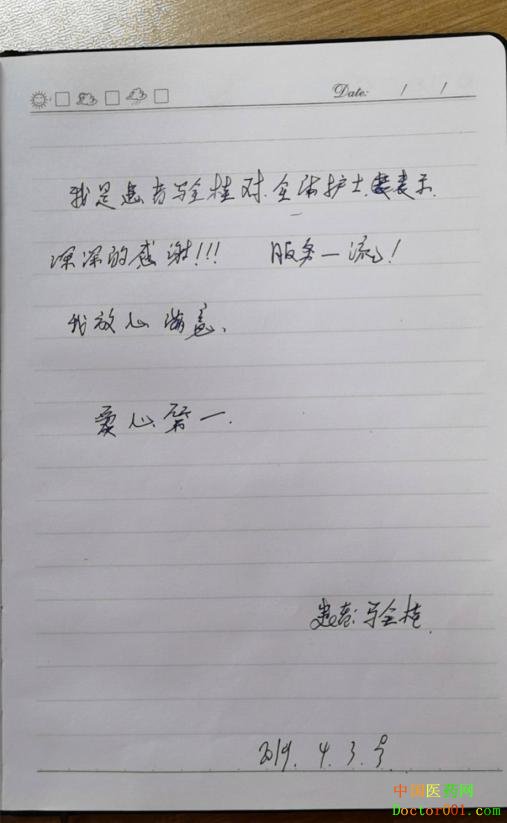 Date: / /
我是患者马全桂对全体护士表示
深深的感谢!!! 服务一流!
我放心满意、
爱心第一.
患者:马全桂.
2019. 4. 3. 号
中国医药网
Doctor001.com